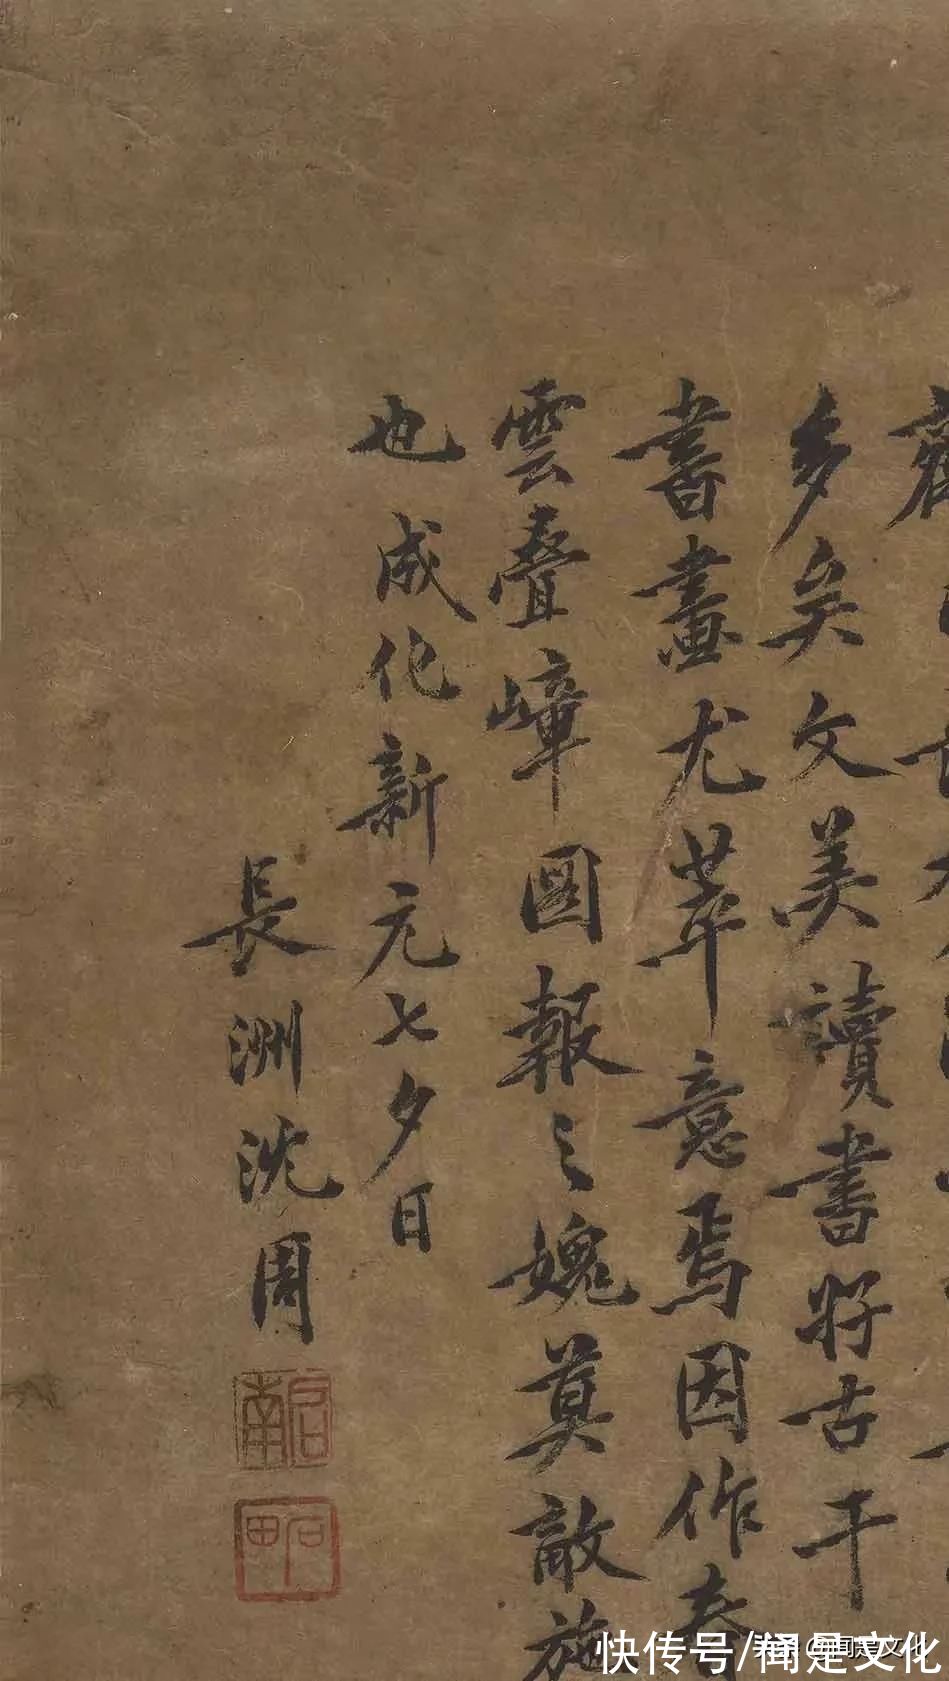 多矣文美讀書将古干
書畫尤萃意焉因作春
雲叠嶂圖報之媿莫敵施
也成化新元七夕日
長洲沈周
啟南
石田
快传号/闻是文化